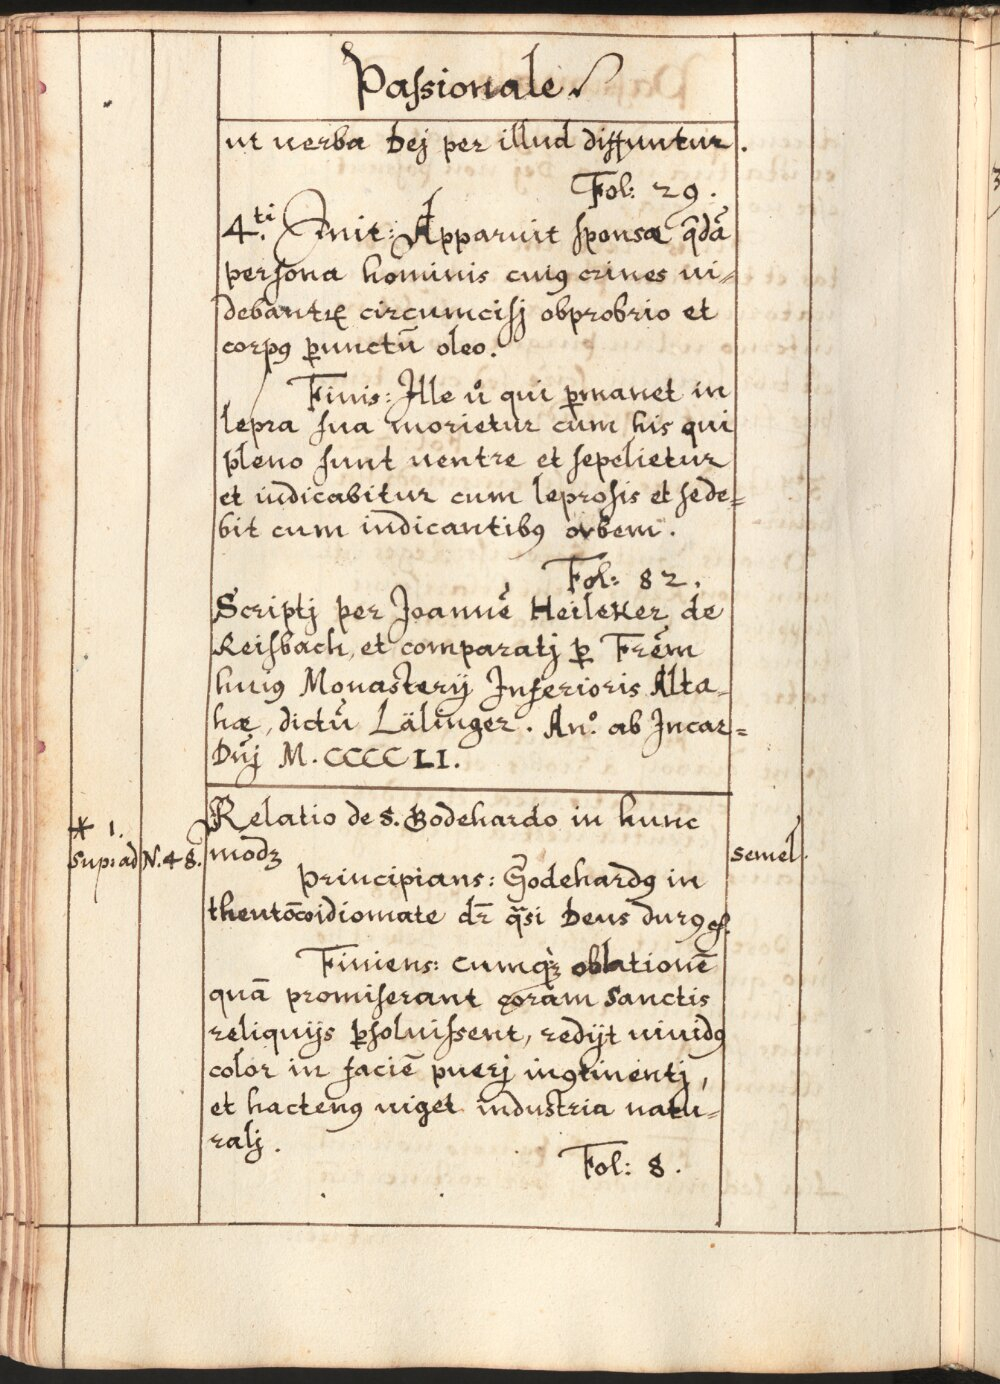 Passionale.
ut uerba Dej per illud diffuntur.
Fol: 29.
4.ti Init: Apparuit sponsæ q̄dā
persona hominis cuiꝯ crines ui=
debantꝛ circumcisj obprobrio et
corpꝯ ꝑunctū oleo.
Finis: Ille u̇ qui ꝑmanet in
lepra sua morietur cum his qui
pleno sunt uentre et sepelietur
et iudicabitur cum leprosis et sede=
bit cum iudicantibꝯ orbem.
Fol: 82.
Scriptj per Joannē Heileker de
Reisbach, et comparatj ꝑ Frēm
huiꝯ Monasterij Inferioris Alta=
hæ, dictū Lälinger. An.º ab Incar=
Dn̄j M.CCCCLI.
Relatio de S. Godehardo in hunc
* 1.
Sup: ad N. 48. modꝫ semel.
Principians: Godehardꝯ in
theutōcoidiomate dr̄ q̄si Deus durꝯ
Finiens: cumqꝫ oblationē
quā promiserant coram sanctis
reliquijs ꝑsoluissent, redijt uiuidꝯ
color in faciē puerj inꝯtinentj,
et hactenꝯ uiget industria natu=
ralj.
Fol: 8.